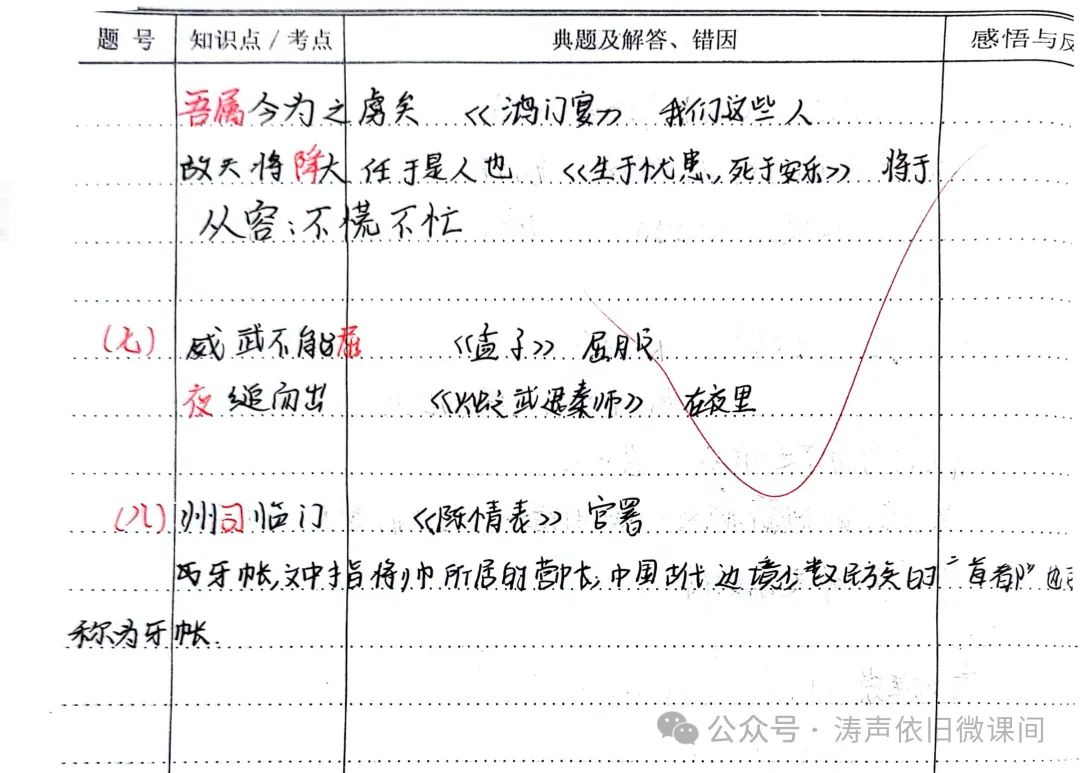 题 号 知识点 / 考点 典题及解答、错因 感悟与反
吾属今为之虏矣 《鸿门宴》 我们这些人
故天将降大任于是人也 《生于忧患,死于安乐》 将于
从容:不慌不忙
(七) 威武不能屈 《孟子》 屈服
夜缒而出 《烛之武退秦师》 在夜里
(八) 州司临门 《陈情表》 官署
牙帐,文中指将帅所居的营帐,中国古代边境少数民族的“首都”也
称为牙帐.
公众号·涛声依旧微课间